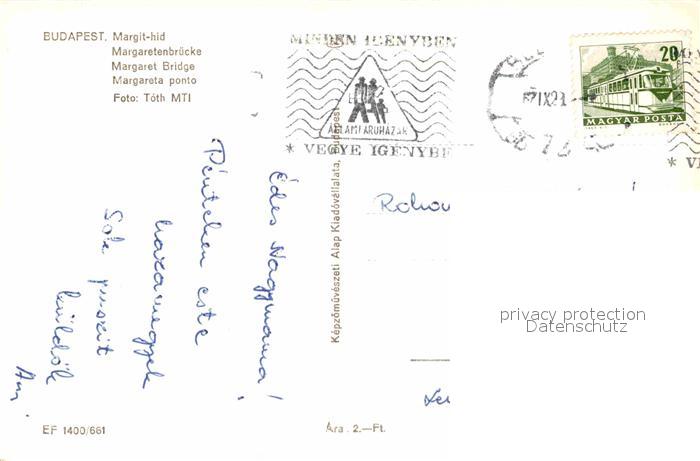 BUDAPEST. Margit-hid
Margaretenbrücke
Margaret Bridge
Margareta ponto
Foto: Tóth MTI
MINDEN IGÉNYBEN
ÁLLAMI ÁRUHÁZAK
* VEGYE IGÉNYBE
20
MAGYAR POSTA
* VE
Édes Nagymama!
Pénteken este
hazamegyek
Sok puszit
küldök
Képzőművészeti Alap Kiadóvállalata, Budapest
Rohov
privacy protection
Datenschutz
EF 1400/661
Ára: 2.—Ft.